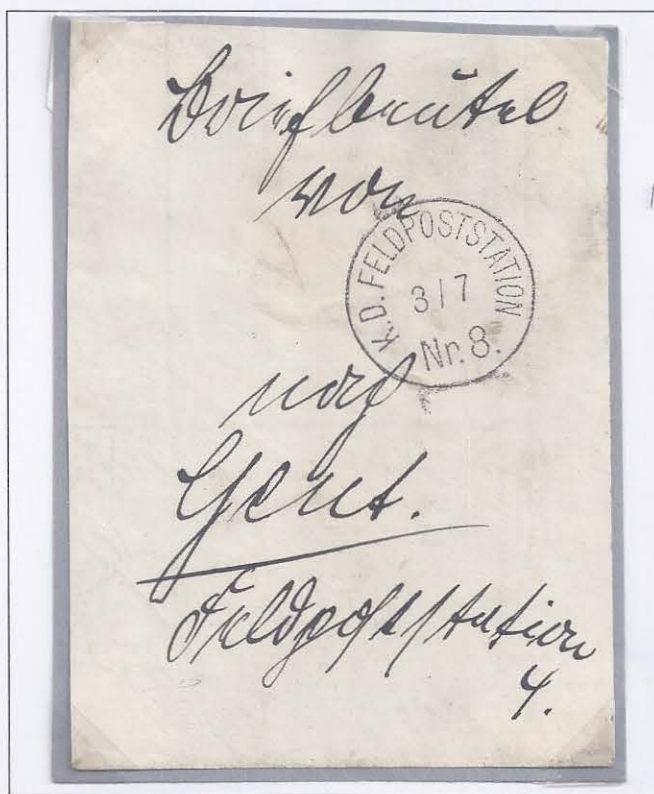 Briefbeutel
von
K.D. FELDPOSTSTATION
3/7
Nr. 8.
nach
Gent.
Feldpoststation
4.